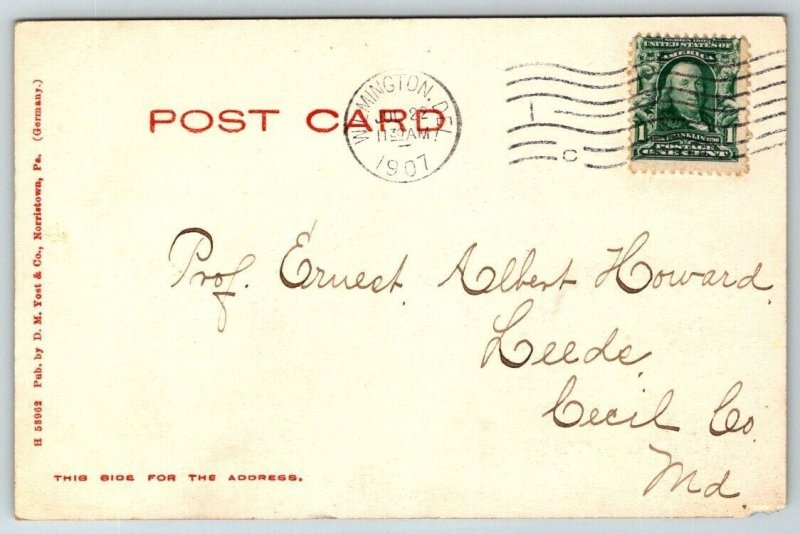 POST CARD
WILMINGTON, DEL.
JUL 22
11 30 AM
1907
1
C
SERIES 1902
UNITED STATES OF
AMERICA
1 1
POSTAGE
ONE CENT
Prof. Ernest Albert Howard
Leeds
Cecil Co.
Md.
THIS SIDE FOR THE ADDRESS.
H 53962 Pub. by D. M. Yost & Co., Norristown, Pa. (Germany.)